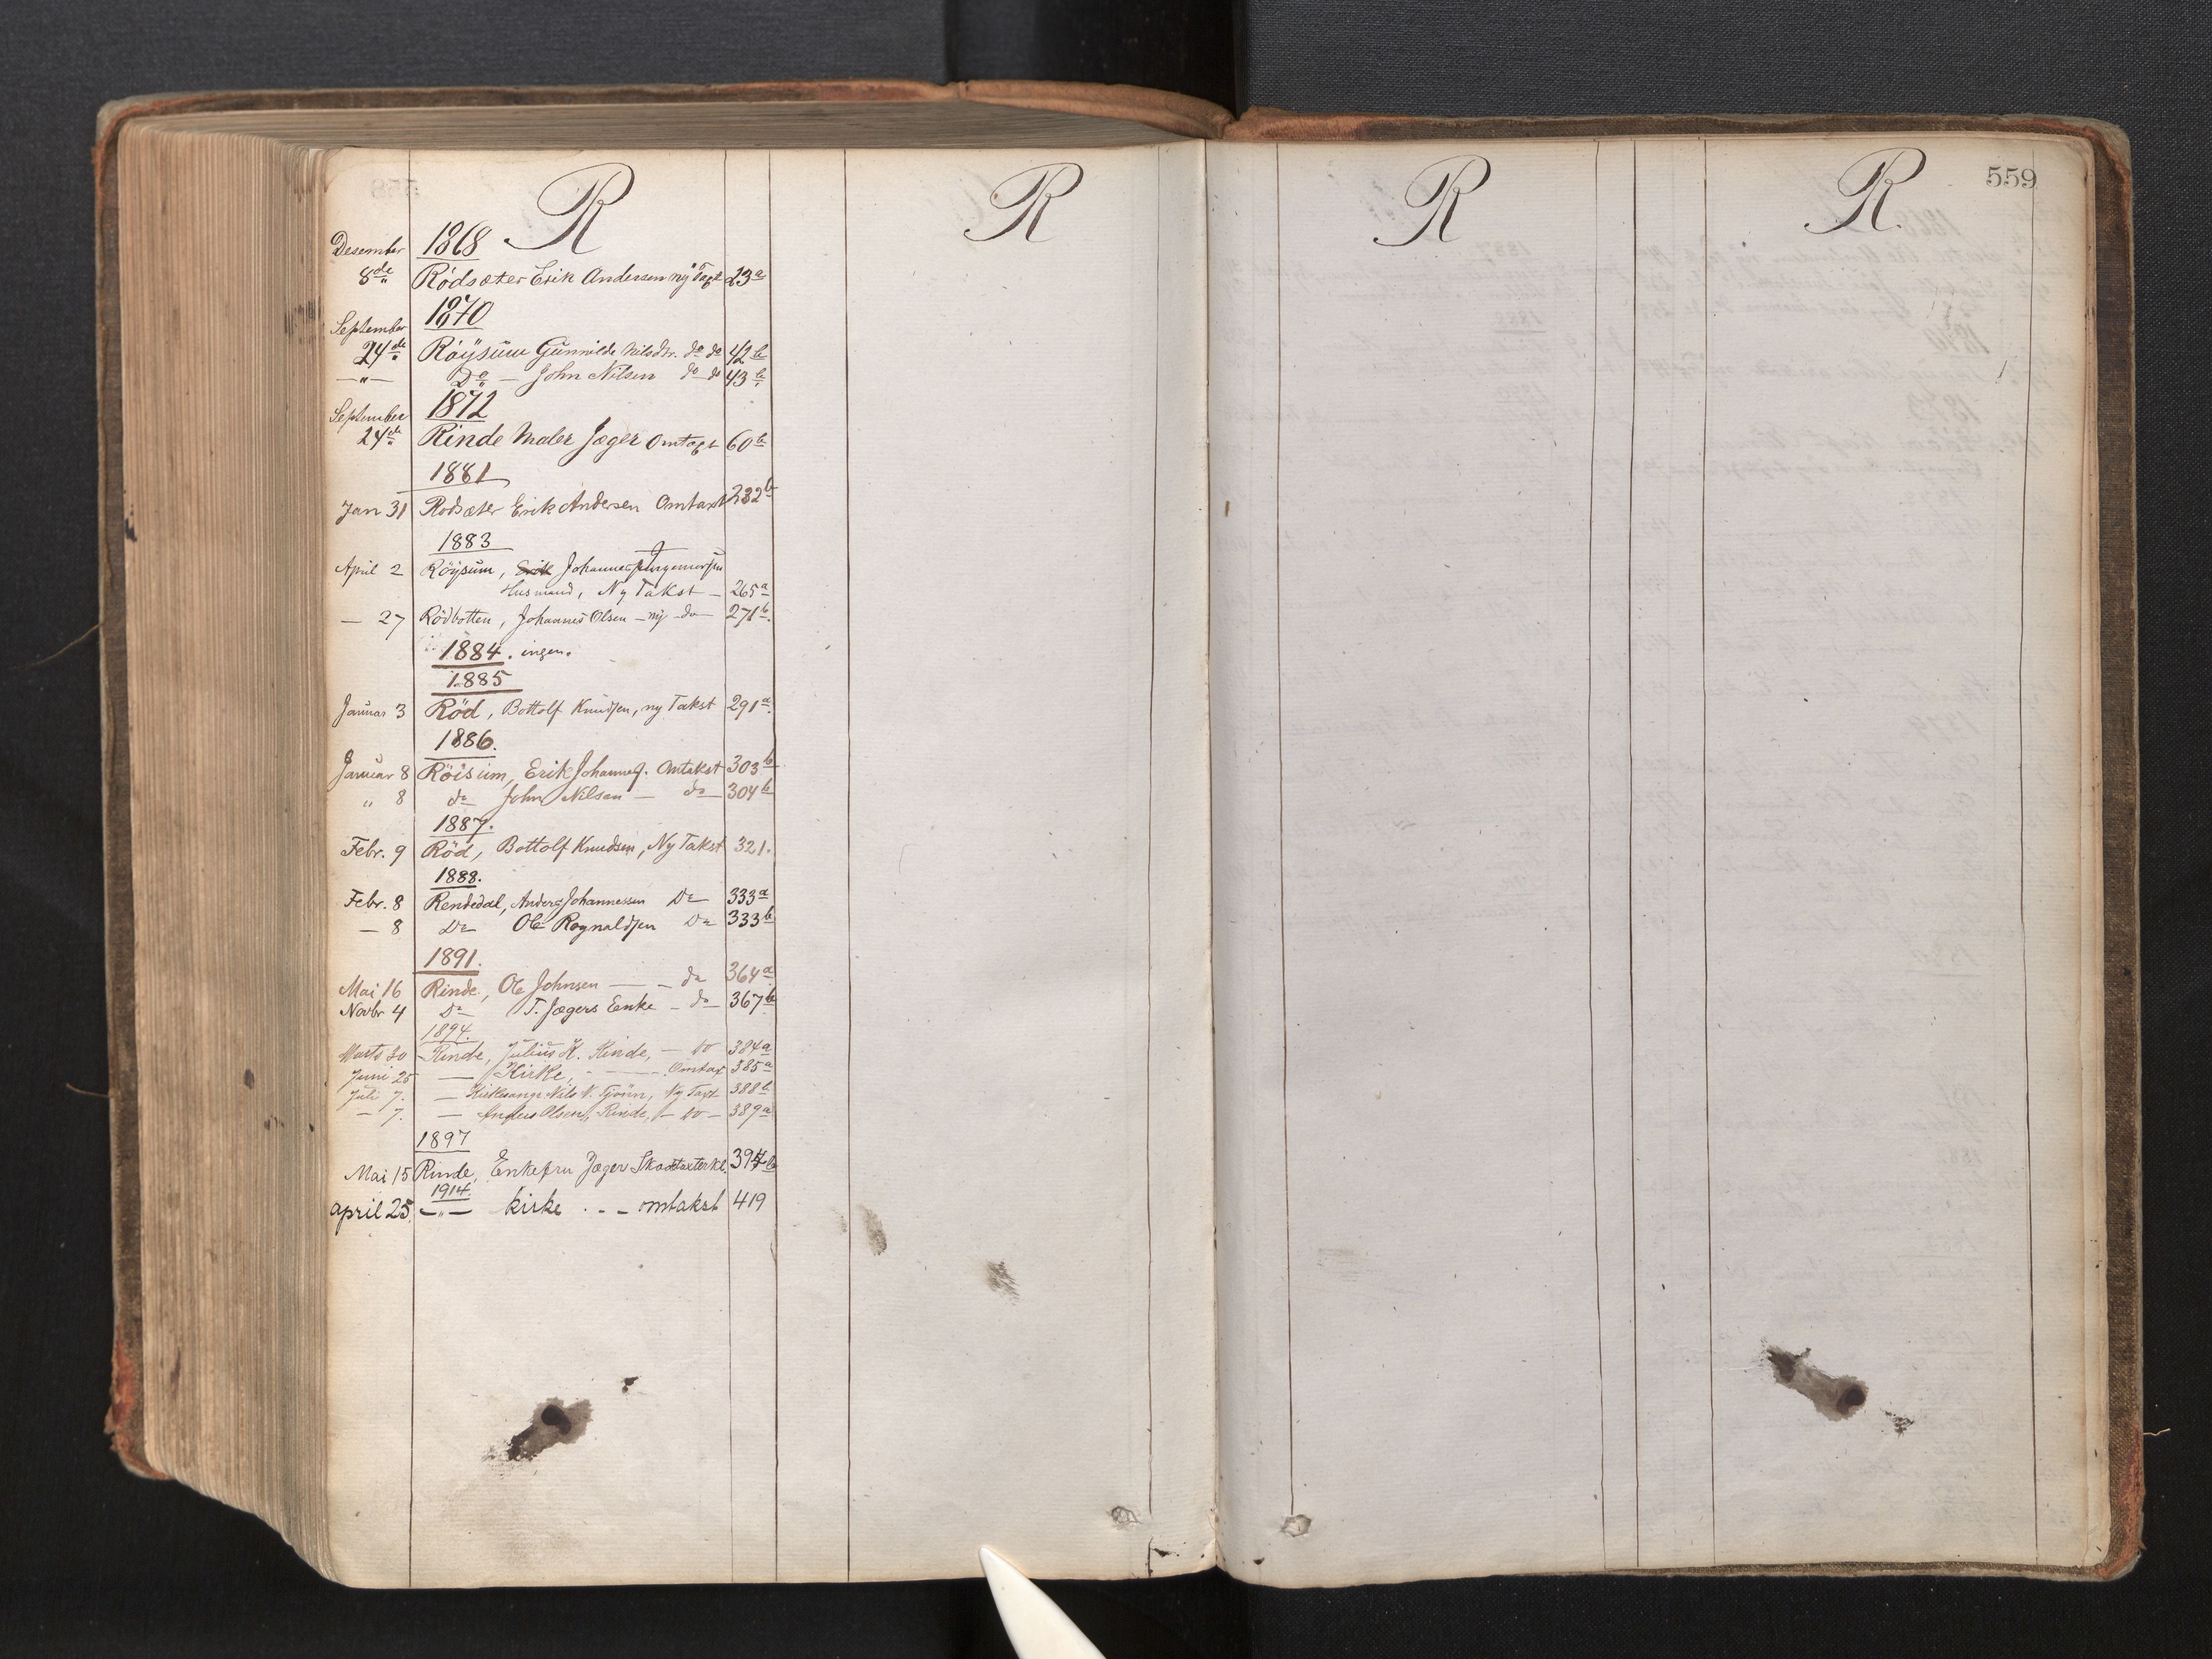 R R R R 559
Desember 1868
8de Rödsæter Erik Andersen ny Taxt 23a
September 1870
24de Röÿsum Gunnilde Nilsdtr. do do 42b
—"— Do — John Nilsen do do 43b
September 1872
24de Rinde Maler Jæger Omtaxt 60b
1881
Jan 31 Rodsæter Erik Andersen Omtaxt 232b
1883
April 2 Röÿsum, Erik Johannes Ingemarsen
Husmand, Ny Takst — 265a
— 27 Rödbotten, Johannes Olsen — ny — do — 271b.
1884. ingen.
1885
Januar 3 Röd, Bottolf Knudsen, ny Takst 291a.
1886.
Januar 8 Röisum, Erik Johannes. Omtakst 303b
" 8 do John Nilsen — do — 304b
1887.
Febr. 9 Röd, Bottolf Knudsen, Ny Takst 321.
1888.
Febr. 8 Rendedal, Anders Johannessen Do 333a
— 8 Do Ole Rognaldsen Do 333b
1891.
Mai 16 Rinde, Ole Johnsen — — do 364a
Novbr 4 Do T. Jægers Enke — do — 367b
1894.
Marts 30 Rinde, Julius K. Rinde, — do 384a
Juni 25 — Kirke, — — Omtax 385a
Juli 7. — Kirkesanger Nils N. Tjönn, Ny Taxt 388b
— 7. — Anders Olsen, Rinde, — do — 389a
1897
Mai 15 Rinde, Enkefru Jæger 394b
1914.
april 25. —"— kirke . — — omtakst 419